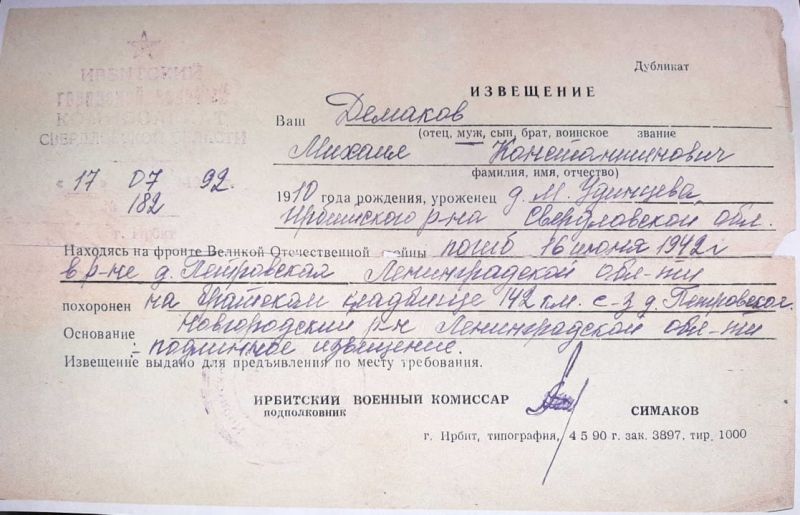 ИРБИТСКИЙ
СВЕРДЛОВСКОЙ ОБЛАСТИ
« 17 » 07 92.
182
г. Ирбит
Дубликат
ИЗВЕЩЕНИЕ
Ваш Демаков
(отец, муж, сын, брат, воинское звание
Михаил Константинович
фамилия, имя, отчество)
1910 года рождения, уроженец д. М. Удинцева,
Ирбитского р-на Свердловской обл.
Находясь на фронте Великой Отечественной войны погиб 16 июня 1942 г
в р-не д. Петровская Ленинградской обл-ти
похоронен на братском кладбище 142 км. с-з д. Петровская.
Новгородский р-н Ленинградской обл-ти
Основание - подлинное извещение.
Извещение выдано для предъявления по месту требования.
ИРБИТСКИЙ ВОЕННЫЙ КОМИССАР
подполковник
СИМАКОВ
г. Ирбит, типография, 4 5 90 г. зак. 3897, тир. 1000